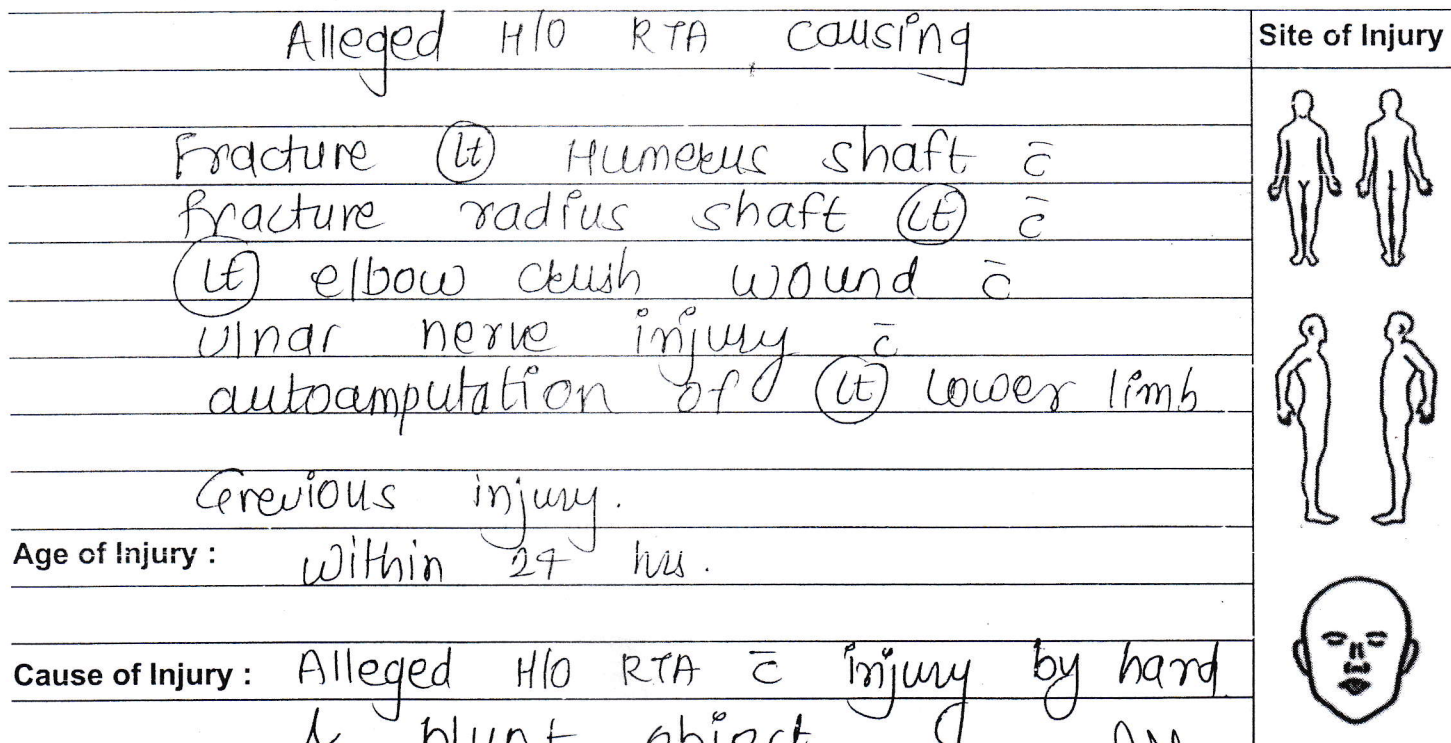 Alleged H/O RTA causing
Site of Injury
Fracture (Lt) Humerus shaft c̄
fracture radius shaft (Lt) c̄
(Lt) elbow crush wound c̄
ulnar nerve injury c̄
autoamputation of (Lt) Lower limb
Grevious injury.
Age of Injury : within 24 hrs.
Cause of Injury : Alleged H/O RTA c̄ injury by hard
& blunt object